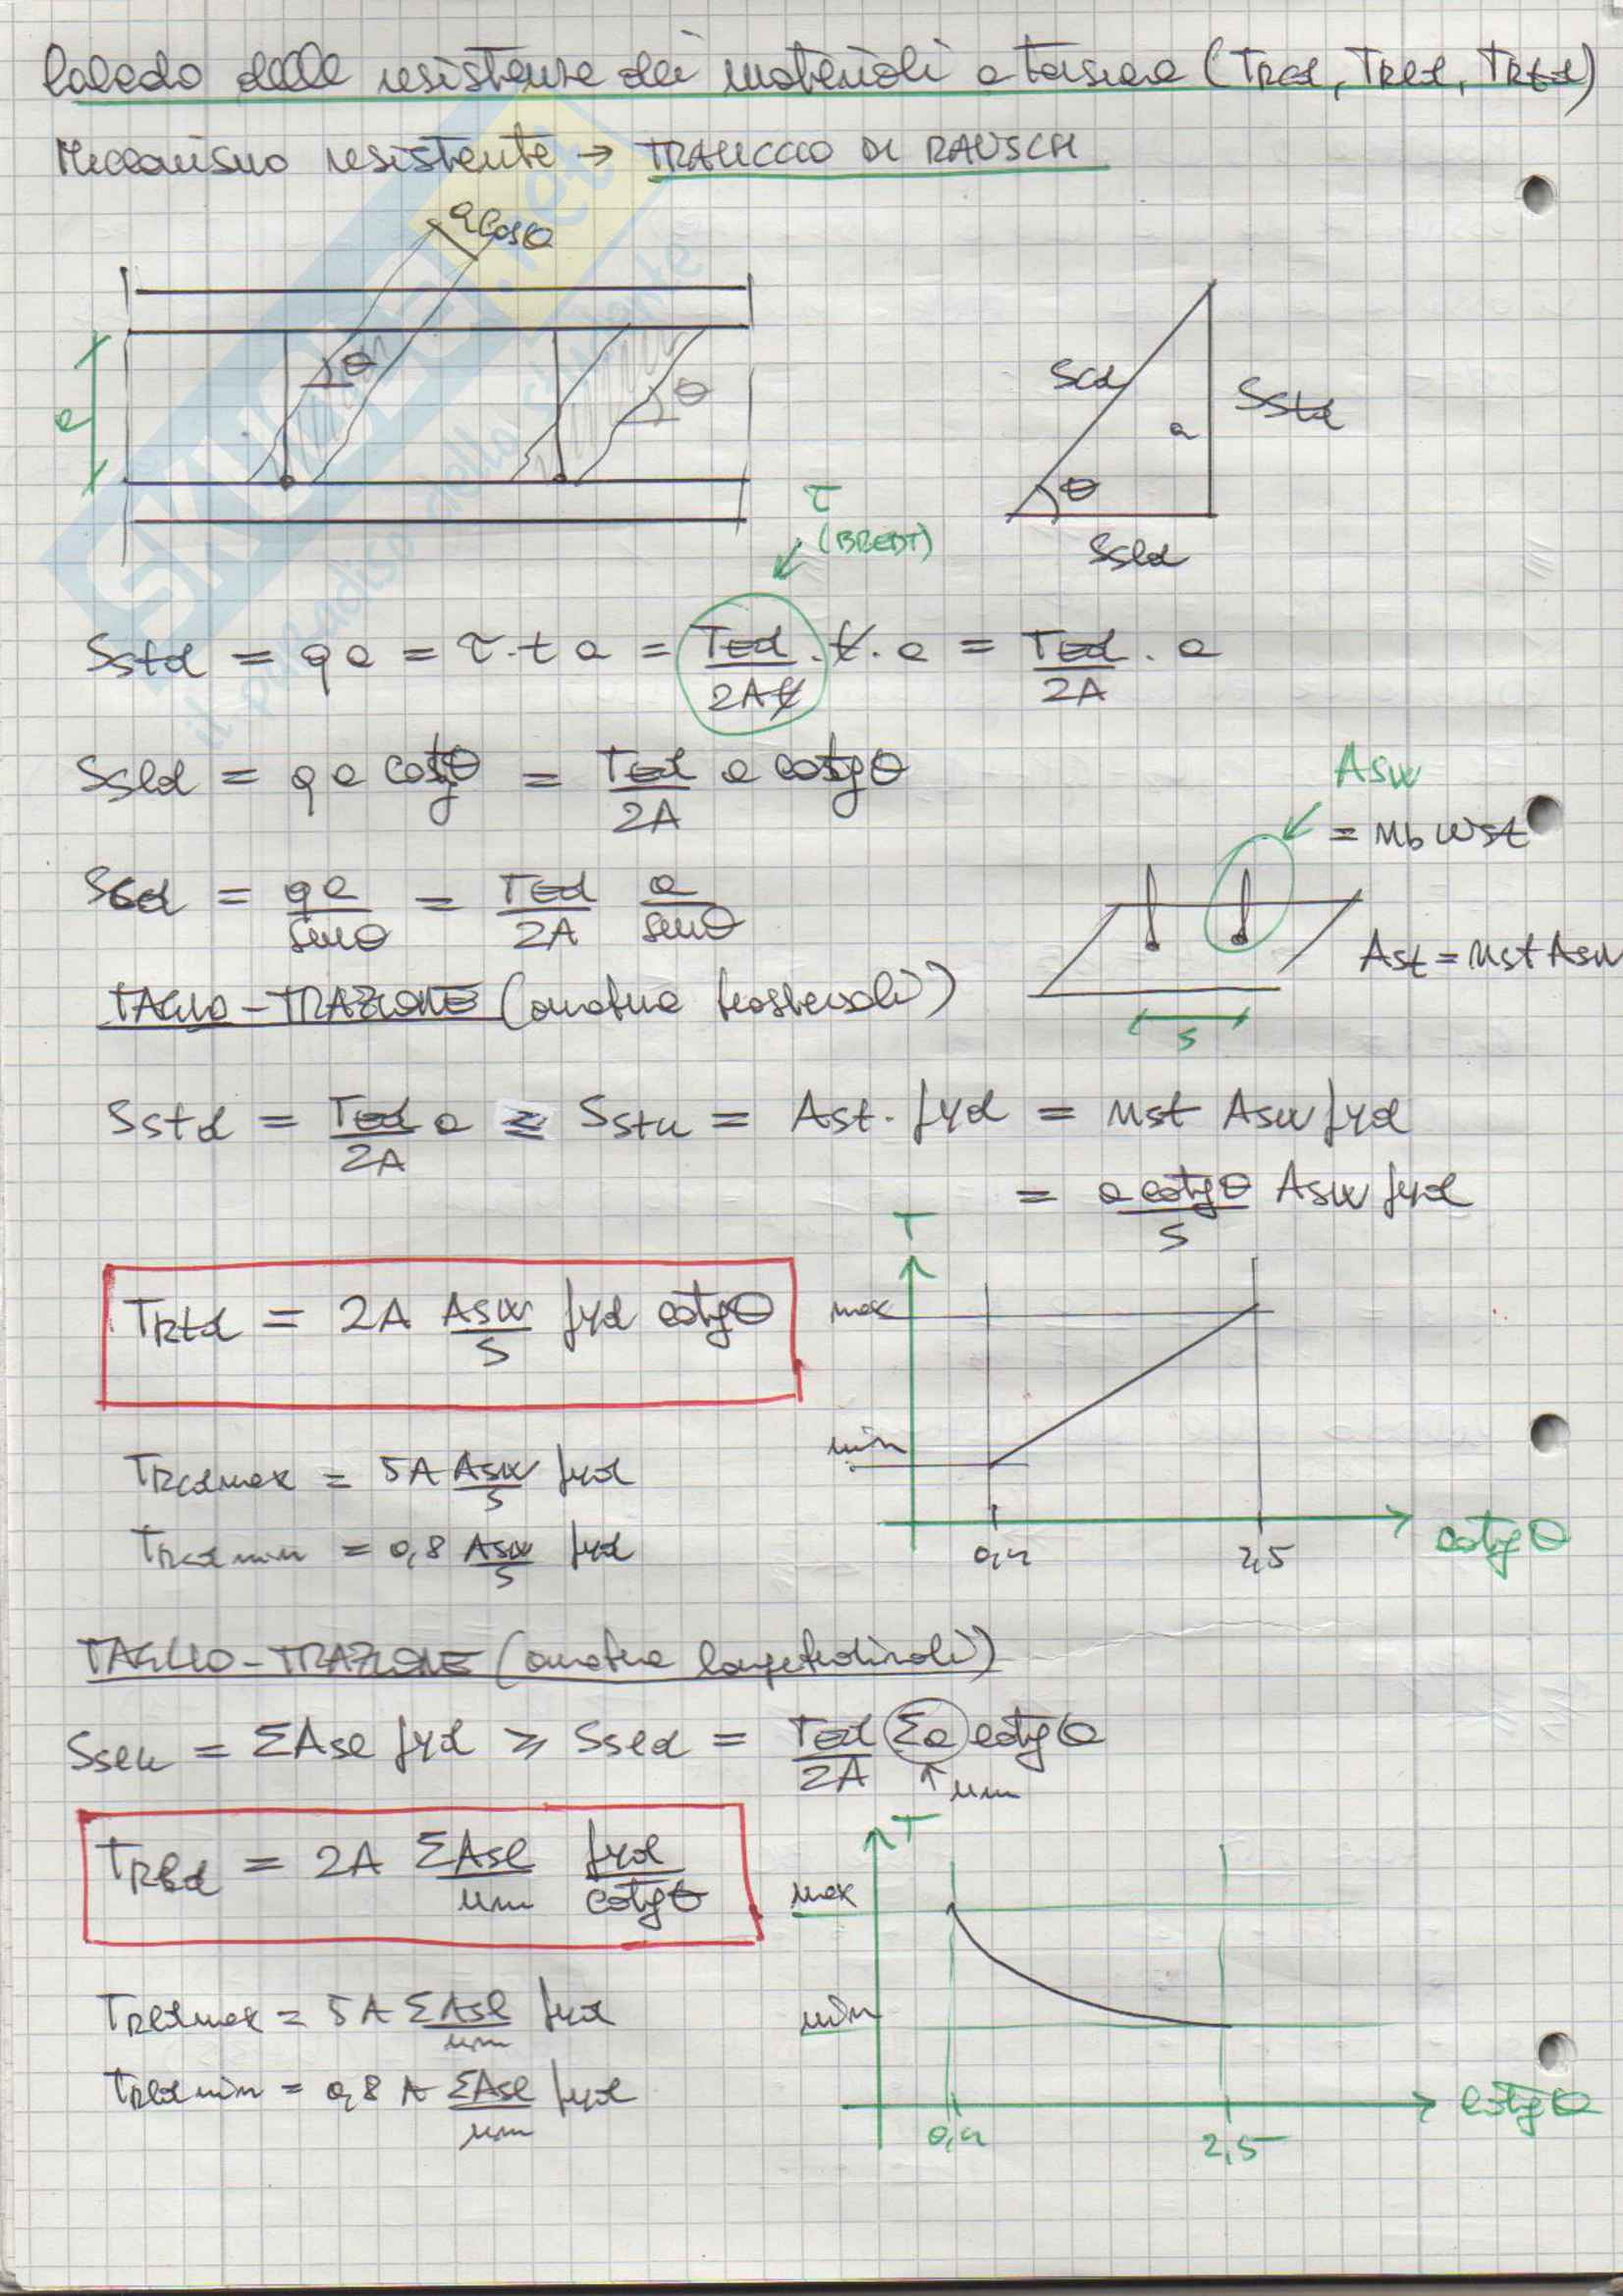 Calcolo delle resistenze dei materiali a torsione (TRcd, TRld, TRtd)
Meccanismo resistente → TRALICCIO DI RAUSCH
a cosθ
θ
θ
a
Scd
Sstd
a
θ
Ssld
τ
(BREDT)
Sstd = q a = τ · t a = TEd/2At · t · a = TEd/2A · a
Ssld = q a cotgθ = TEd/2A a cotgθ
Asw
= nb wst
Scd = qa/senθ = TEd/2A a/senθ
Ast = nst Asw
s
TAGLIO-TRAZIONE (armature trasversali)
Sstd = TEd/2A a ≤ Sstu = Ast · fyd = nst Asw fyd
= a cotgθ/s Asw fyd
TRtd = 2A Asw/s fyd cotgθ
T
max
min
0,4
2,5
cotgθ
TRcd max = 5A Asw/s fyd
TRcd min = 0,8 Asw/s fyd
TAGLIO-TRAZIONE (armature longitudinali)
Sslu = ΣAsl fyd ≥ Ssld = TEd/2A Σa cotgθ
↑ um
TRld = 2A ΣAsl/um fyd/cotgθ
T
max
min
0,4
2,5
cotgθ
TRld max = 5A ΣAsl/um fyd
TRld min = 0,8 A ΣAsl/um fyd
SKUOLA.net
il paradiso dello studente